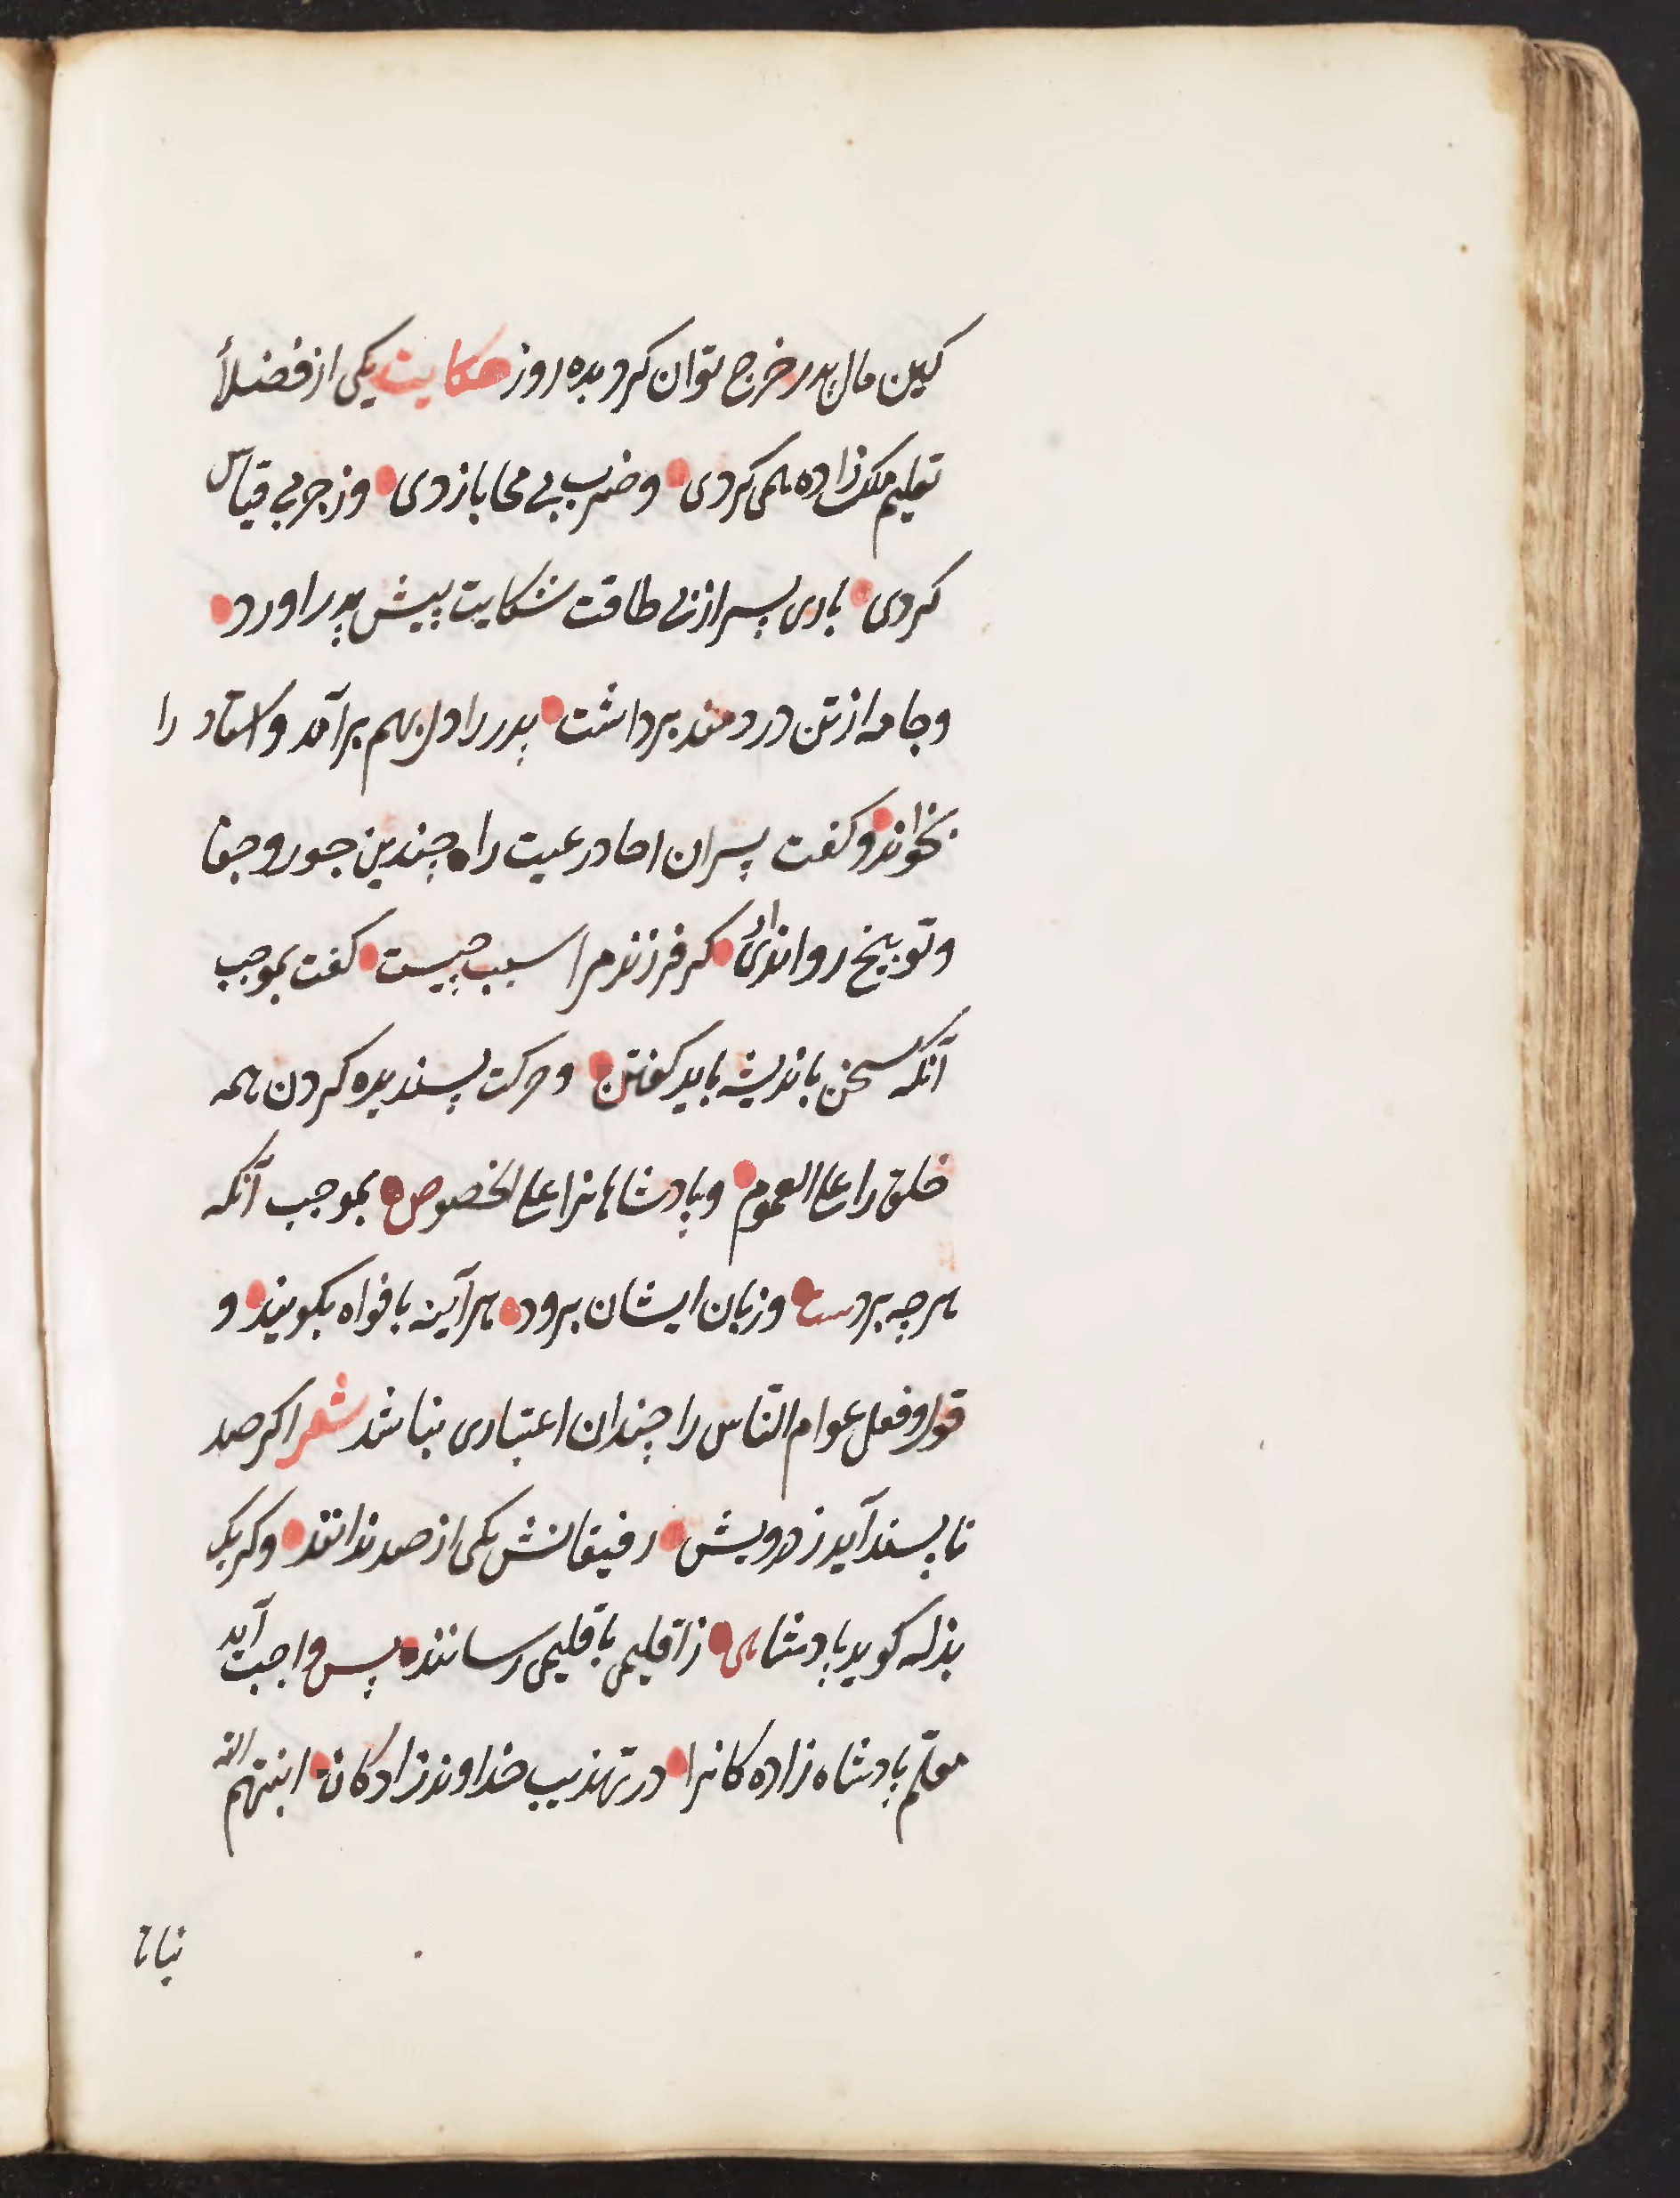 کین مال پدر خرج توان کرد بده روز حکایت یکی از فضلأ
تعلیم ملک زاده همی کردی وضرب بی محابا زدی وزجر بی قیاس
کردی باری پسر از بی طاقت شکایت پیش پدر اورد
وجامه از تن دردمند برداشت پدر را دل بهم برآمد واستاد را
بخواند وکفت پسران احاد رعیت را چندین جور وجفا
وتوبیخ روا نداری که فرزند مرا سبب چیست کفت بموجب
آنکه سخن باندیشه باید کفتن وحرکت پسندیده کردن همه
خلق را علی العموم وپادشاهانرا علی الخصوص بموجب آنکه
هرچه بر دست وزبان ایشان برود هرآینه بافواه بکویند و
قول وفعل عوام الناس را چندان اعتباری نباشد شعر اکر صد
ناپسند آید ز درویش رفیقانش یکی از صد ندانند وکر یک
بذله کوید پادشاهی ز اقلیمی باقلیمی رسانند پس واجب آید
معلّم پادشاه زاده کانرا در تهذیب خداوندزادکان انبتهم الله
نباتا